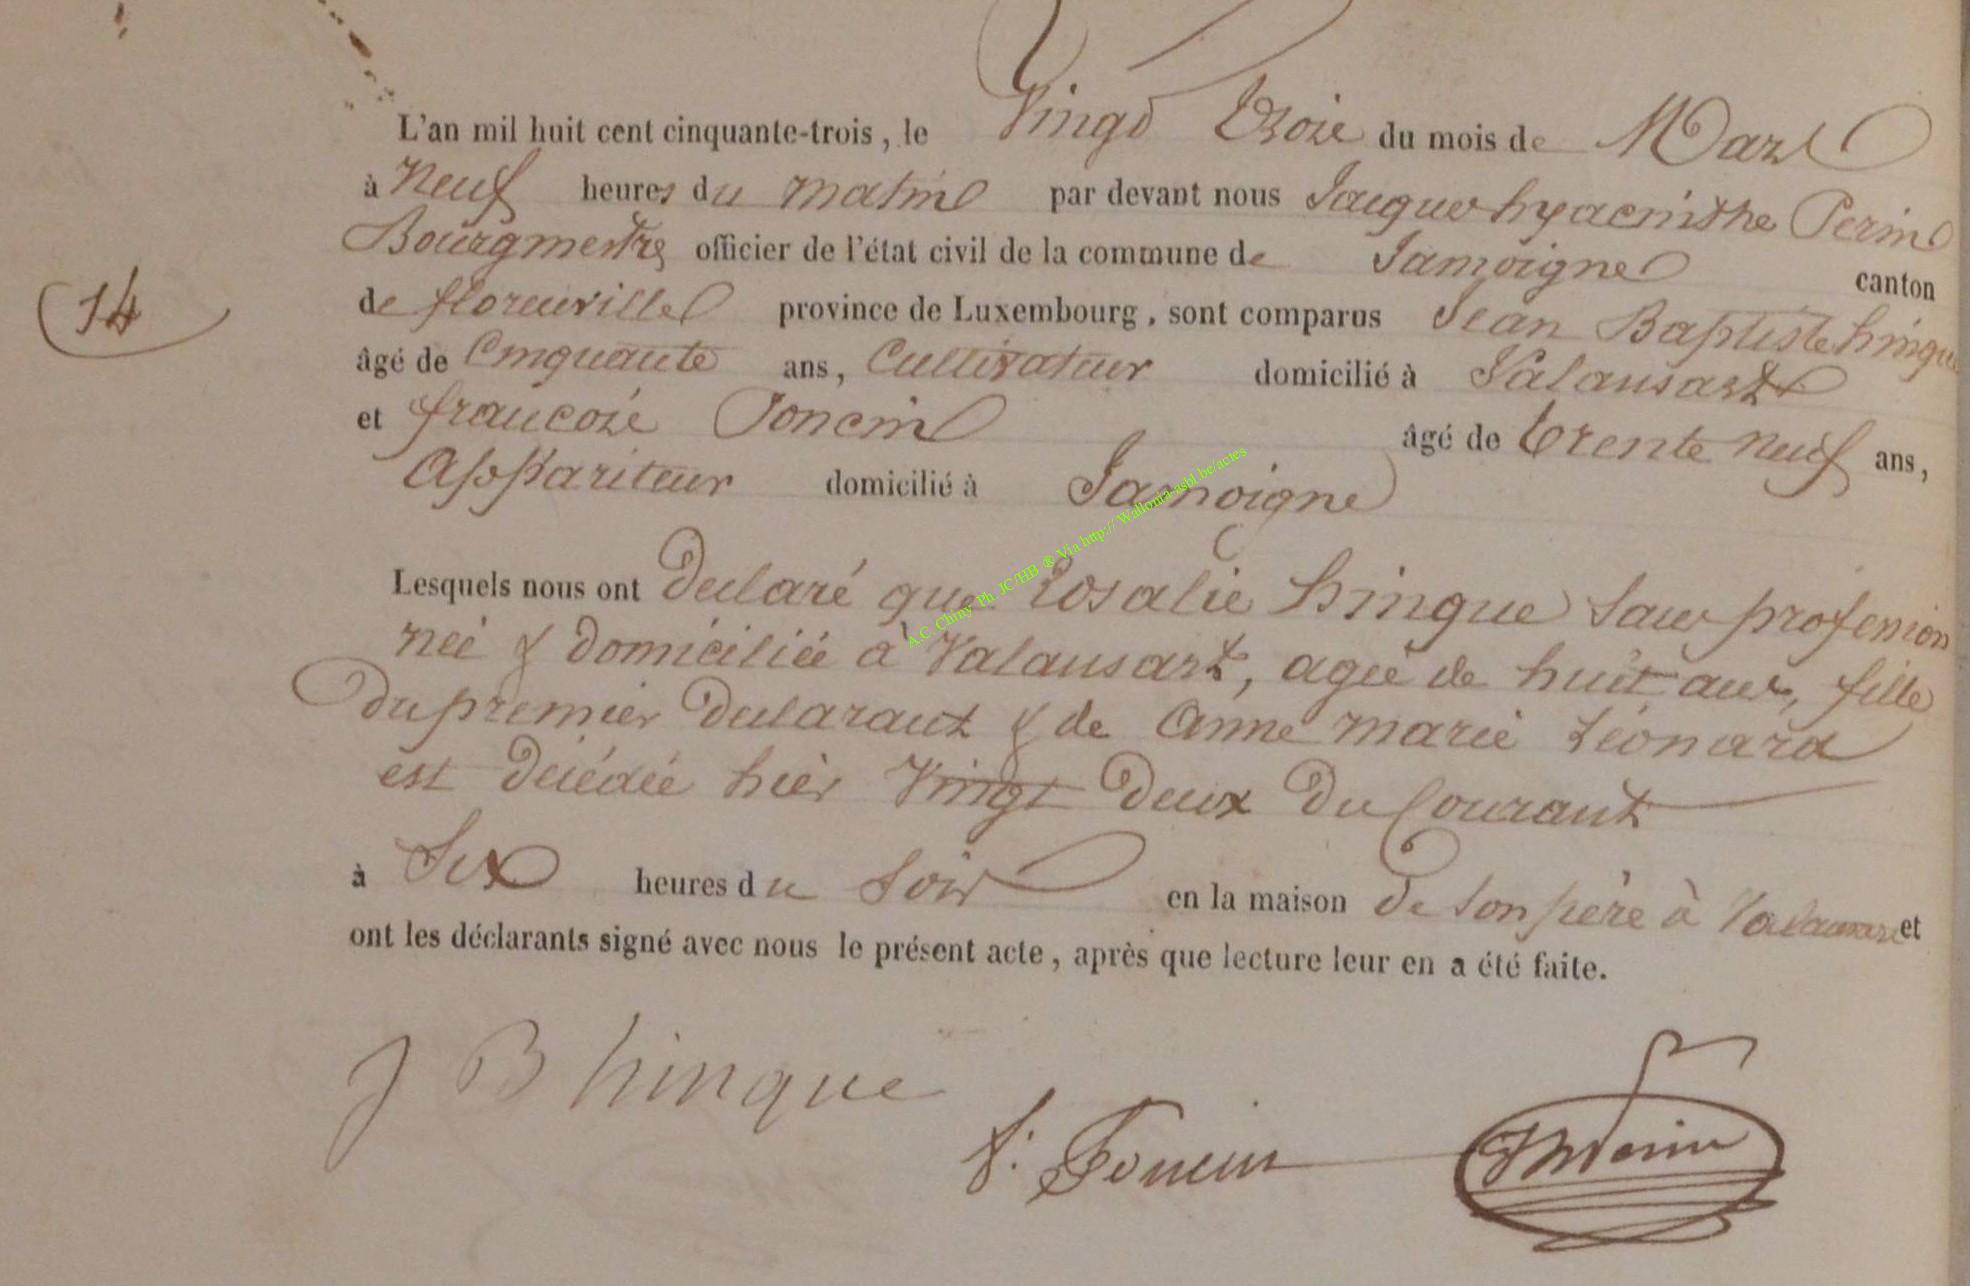 L'an mil huit cent cinquante-trois, le Vingt Trois du mois de Mars
à Neuf heures du matin par devant nous Jacques hyacinthe Perin
Bourgmestre officier de l'état civil de la commune de Jamoigne canton
de florenville province de Luxembourg, sont comparus Jean Baptiste hinque
14
âgé de Cinquante ans, Cultivateur domicilié à Valansart
et francois Poncin âgé de trente neuf ans,
Appariteur domicilié à Jamoigne
A.C. Chiny Ph. JC/HB ® Via http:// Wallonia-asbl.be/actes
Lesquels nous ont Declaré que Rosalie hinque Sans profession
née & domiciliée à Valansart, agée de huit ans, fille
du premier Declarant & de Anne marie Léonard
est Décédée hier Vingt Deux Du Courant
à Six heures du Soir en la maison De Son père à Valansart et
ont les déclarants signé avec nous le présent acte, après que lecture leur en a été faite.
J B hinque
f. Poncin